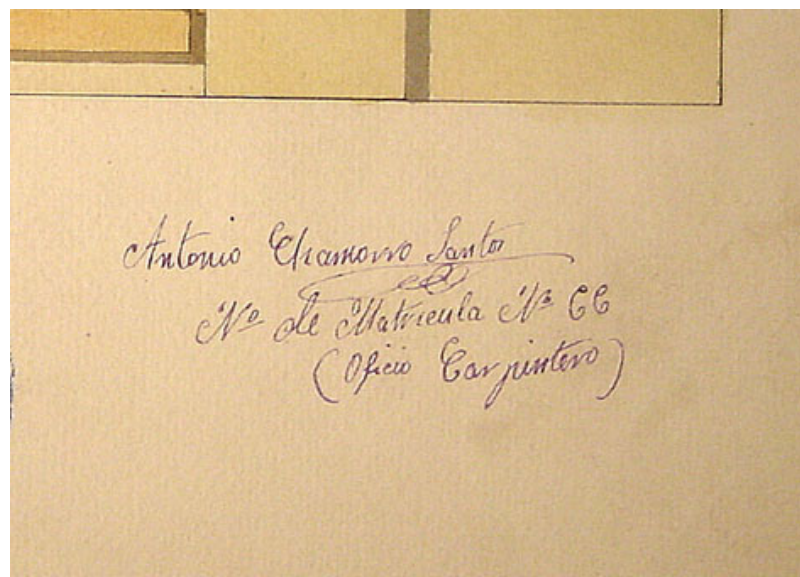 Antonio Chamorro Santos
Nº de Matricula Nº 66
(Oficio Carpintero)